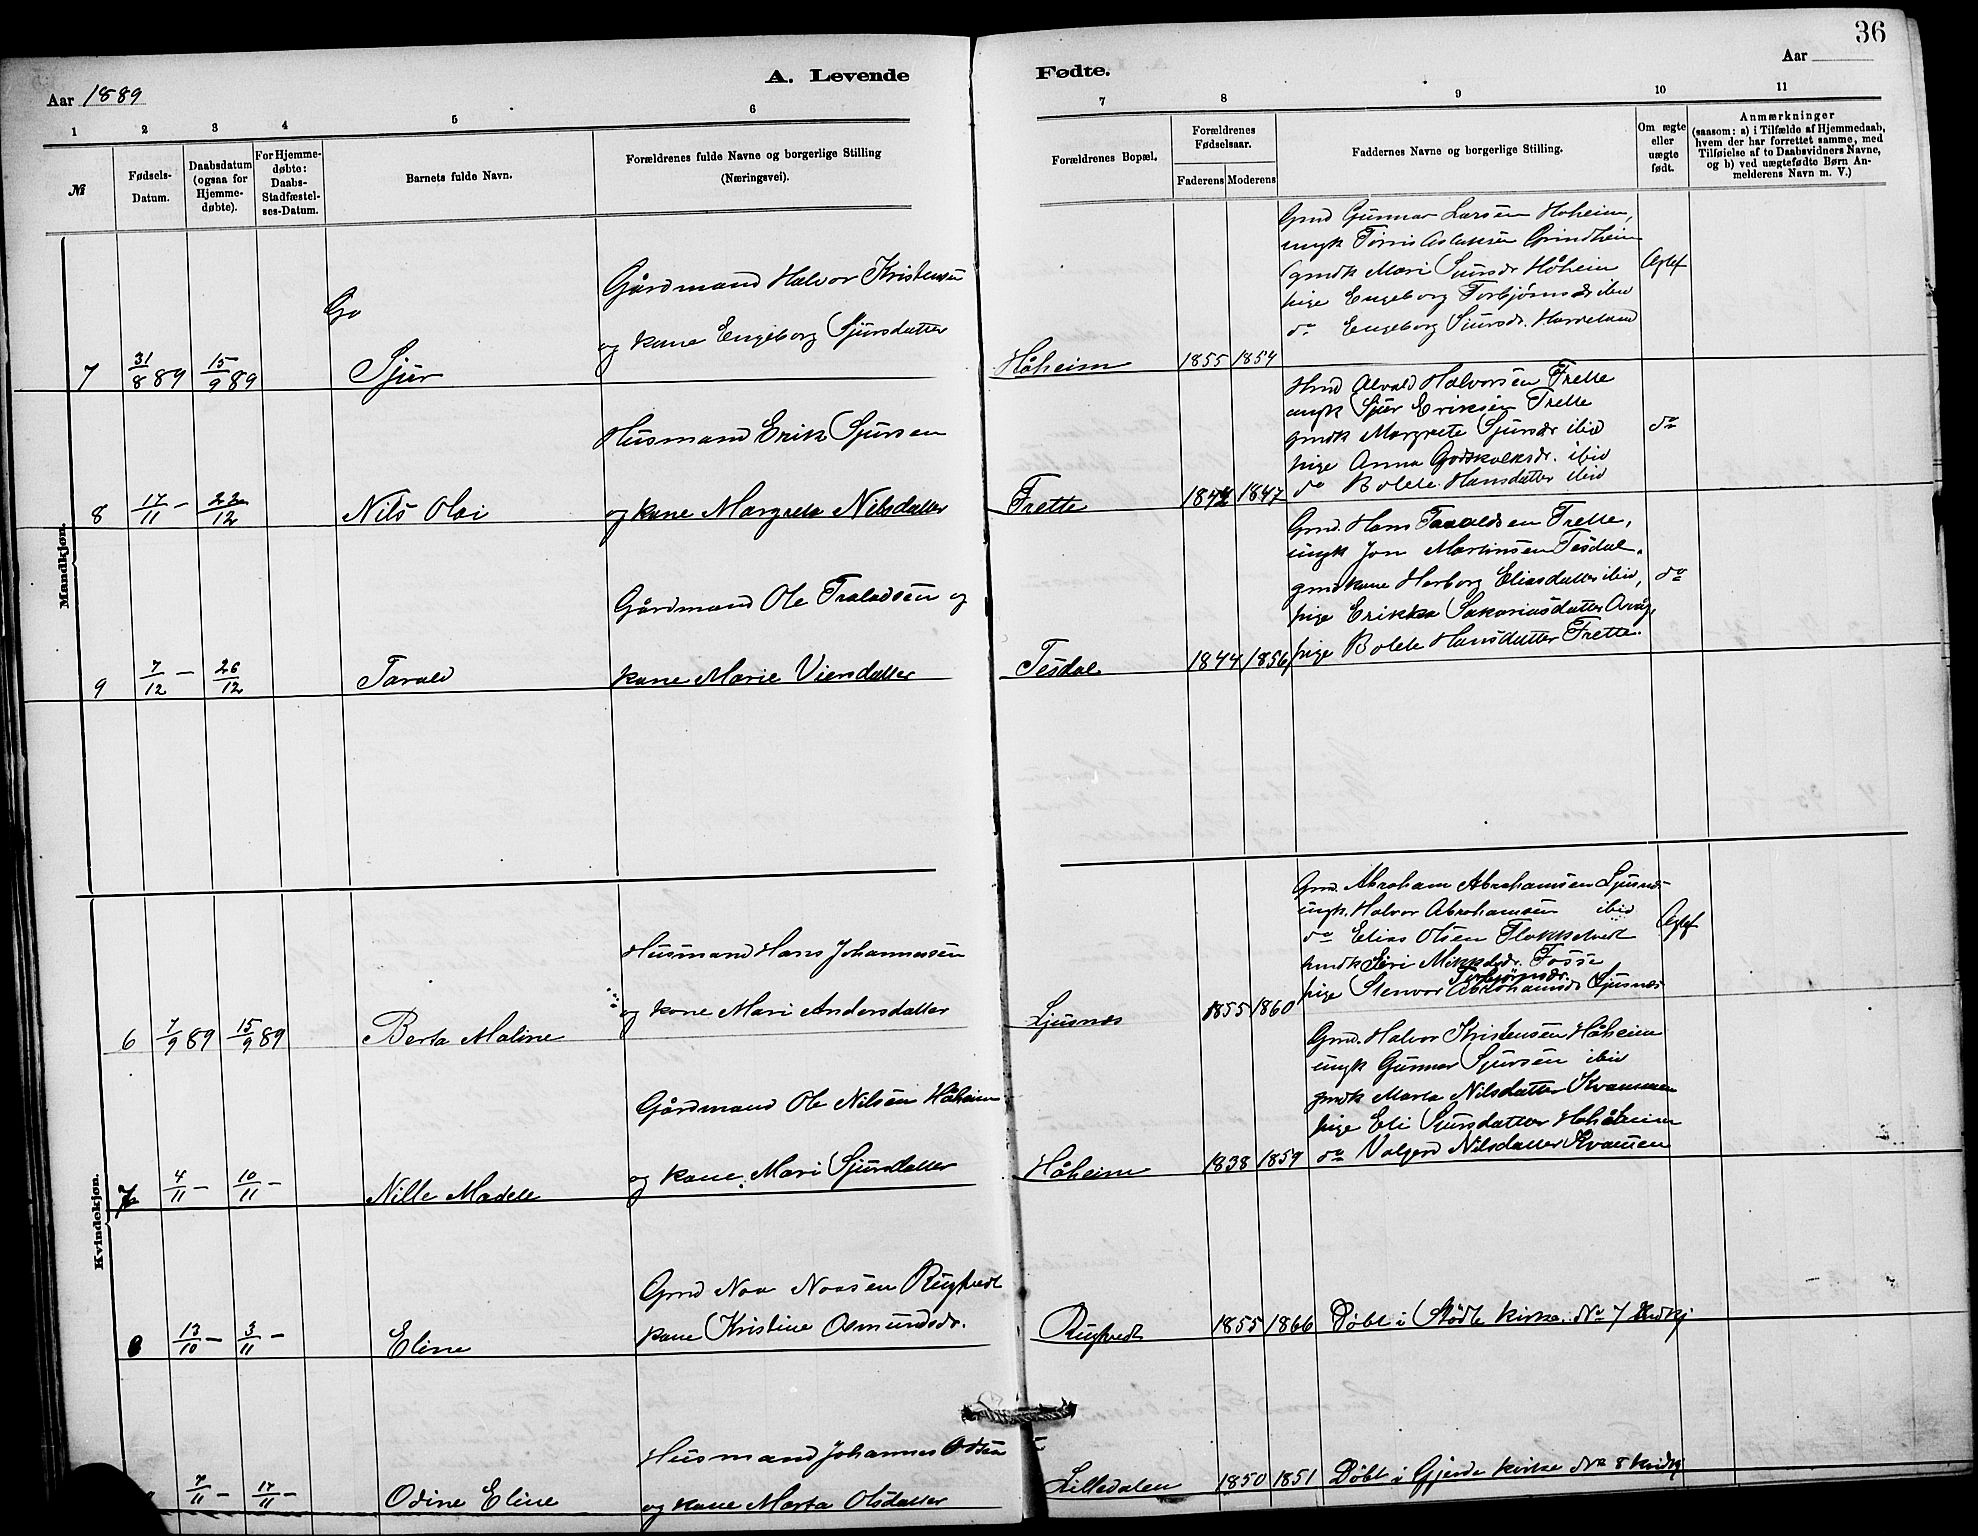 36
Aar 1889
A. Levende
Fødte.
Aar
1 2 3 4 5 6 7 8 9 10 11
№
Fødsels-Datum.
Daabsdatum (ogsaa for Hjemme-døbte).
For Hjemme-døbte: Daabs-Stadfæstel-ses-Datum.
Barnets fulde Navn.
Forældrenes fulde Navne og borgerlige Stilling (Næringsvei).
Forældrenes Bopæl.
Forældrenes Fødselsaar.
Faderens Moderens
Faddernes Navne og borgerlige Stilling.
Om ægte eller uægte født.
Anmærkninger
(saasom: a) i Tilfælde af Hjemmedaab,
hvem der har forrettet samme, med
Tilføielse af to Daabsvidners Navne,
og b) ved uægtefødte Børn An-
melderens Navn m. V.)
Mandkjøn.
Go
7 31/8 89 15/9 89 Sjur
Gårdmand Halvor Kristensen
og kone Engeborg Sjursdatter
Håheim 1855 1854
Gmd Gunnar Larsen Hoheim,
ungk Tørris Aslaksen Grindheim
gmdk Mari Sjursdr Håheim
pige Engeborg Torbjørnsdr ibid
do Engeborg Sjursdr. Haveland
Ægtef
8 17/11 - 22/12 Nils Olai
Husmand Erik Sjursen
og kone Margreta Nilsdatter
Frette 1842 1847
Hmd Alvald Halvorsen Frette
ungk Sjur Eriksen Frette
gmdk Margrete Sjursdr ibid
pige Anna Godskalksdr. ibid
do Bolete Hansdatter ibid
do
9 7/12 - 26/12 Tarald
Gårdmand Ole Traladsen og
kone Marie Viersdatter
Tesdal 1844 1856
Gmd. Hans Taraldsen Frette,
ungk Jon Martinsen Tesdal.
gmdkone Harborg Eliasdatter ibid,
pige Erikka Sakariasdatter
pige Bolete Hansdatter Frette.
do
Kvindekjøn.
6 7/9 89 15/9 89 Berta Maline
Husmand Hans Johannessen
og kone Mari Andersdatter
Ljusnes 1855 1860
Gmd. Abraham Abrahamsen Ljusnes
ungk. Halvor Abrahamsen ibid
do Elias Olsen Flokketvedt
hmdk Siri Mikkelsdr. Fosse
Torbjørnsdr.
pige Stenvor Abrahamsdr Ljusnes
Ægtef
7 4/11 - 10/11 - Nille Madele
Gårdmand Ole Nilsen Håheim
og kone Mari Sjursdatter
Håheim 1838 1859
Gmd. Halvor Kristensen Håheim
ungk Gunnar Sjursen ibid
gmdk Marta Nilsdatter Kvammen
pige Eli Sjursdatter Håheim
do Valgerd Nilsdatter Kvamen
8 13/10 - 3/11 - Eline
Gmd Noa Noasen Rugtvedt
kone Kristine Osmundsdr.
Rugtvedt 1855 1866 Døbt i Stødle kirke. No 7
7/11 - 17/11 - Odine Eline
Husmand Johannes Odsen
og kone Marta Olsdatter
Lilledalen 1850 1851 Døbt i Gjerde kirke No 8 kvdkj